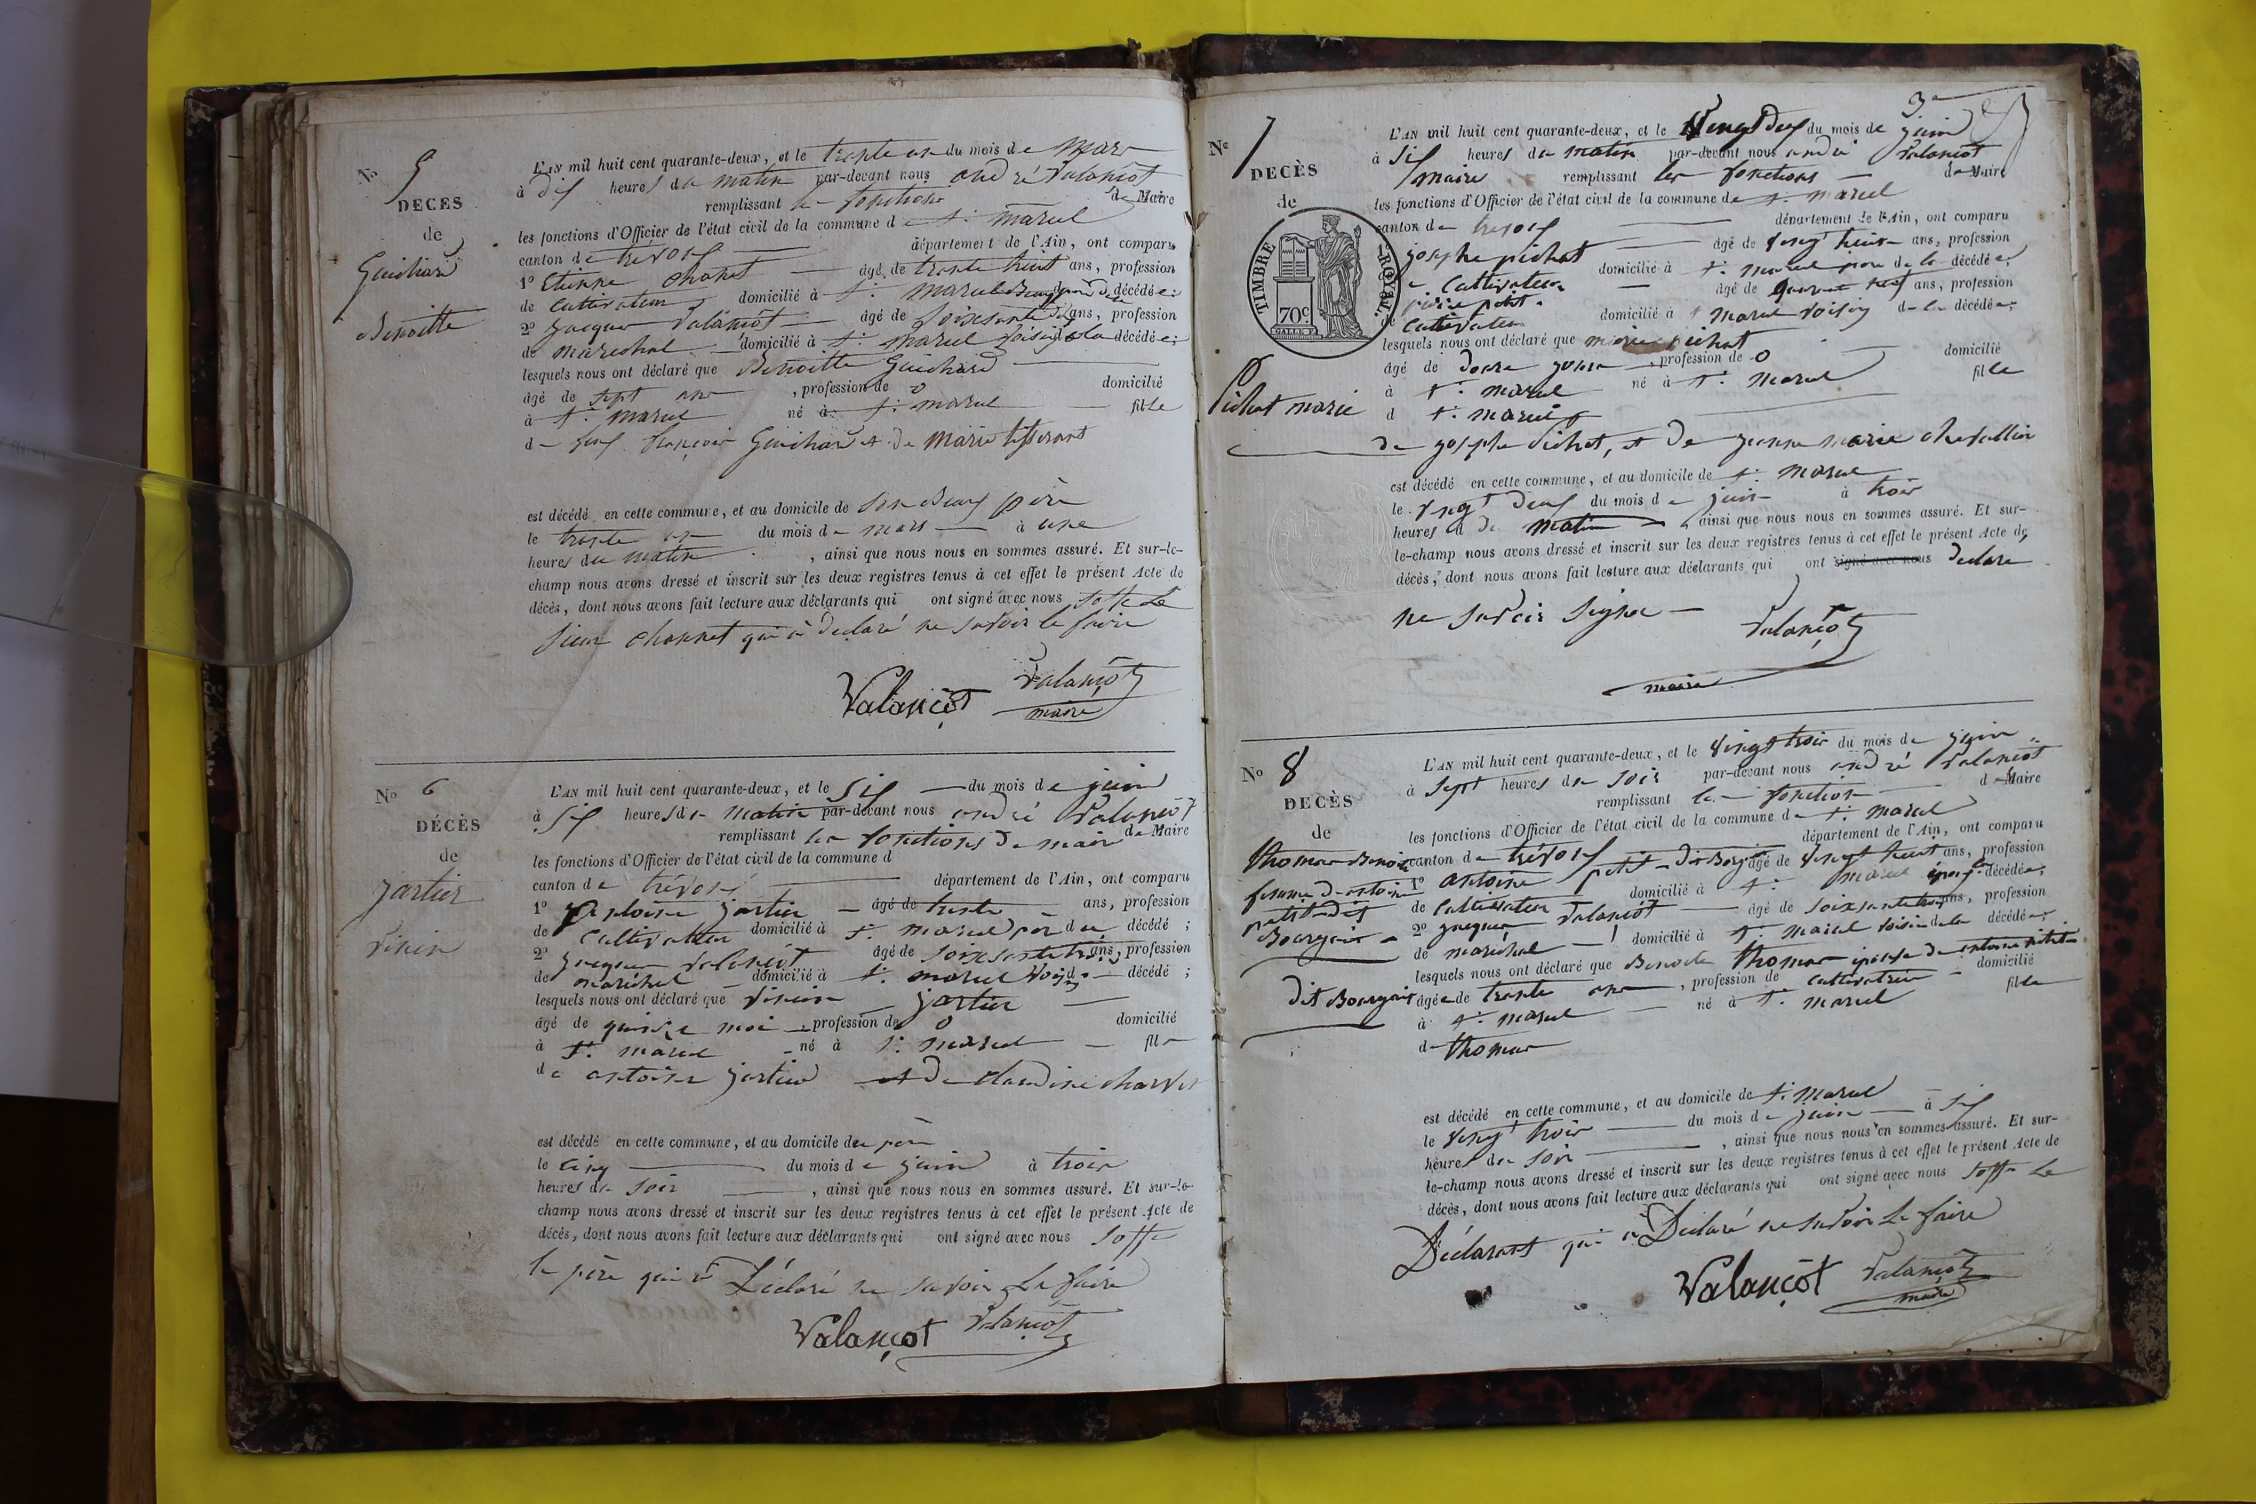 No 5
DÉCÈS
de
Guichard
Benoitte
L'AN mil huit cent quarante-deux, et le trente un du mois de mars
à dix heures du matin par-devant nous andré Valançot
remplissant les fonctions de Maire
les fonctions d'Officier de l'état civil de la commune de St. marcel
canton de trévoux département de l'Ain, ont comparu
1o Etienne chanet âgé de trente huit ans, profession
de cultivateur domicilié à St. marcel Beaupère de la décédée;
2o jacques Valançot âgé de soixante ans, profession
de marechal domicilié à St. marcel voisin de la décédée;
lesquels nous ont déclaré que Benoitte Guichard
âgé de sept ans, profession de 0 domicilié
à St. marcel né à St. marcel fille
de feu françois Guichard et de marie tisserant
est décédé en cette commune, et au domicile de son Beau père
le trente un du mois de mars à une
heures du matin, ainsi que nous nous en sommes assuré. Et sur-le-
champ nous avons dressé et inscrit sur les deux registres tenus à cet effet le présent Acte de
décès, dont nous avons fait lecture aux déclarants qui ont signé avec nous soffe Le
sieur channet qui a declaré ne savoir le faire
Valançot Valançot
maire
No 6
DÉCÈS
de
jartier
L'AN mil huit cent quarante-deux, et le six du mois de juin
à six heures du matin par-devant nous andré Valançot
remplissant les fonctions de maire de Maire
les fonctions d'Officier de l'état civil de la commune d
canton de trévoux département de l'Ain, ont comparu
1o antoine jartier âgé de trente ans, profession
de cultivateur domicilié à St. marcel père du décédé;
2o jacques Valançot âgé de soixante trois ans, profession
de maréchal domicilié à St. marcel voisin décédé;
lesquels nous ont déclaré que jartier
âgé de quinze moi profession de 0 domicilié
à St. marcel né à St. marcel fils
de antoine jartier et de claudine charvet
est décédé en cette commune, et au domicile du père
le cinq du mois de juin à trois
heures du soir, ainsi que nous nous en sommes assuré. Et sur-le-
champ nous avons dressé et inscrit sur les deux registres tenus à cet effet le présent Acte de
décès, dont nous avons fait lecture aux déclarants qui ont signé avec nous soffe
le père qui a Déclaré ne savoir Le faire
Valançot Valançot
3e
No 7
DÉCÈS
de
TIMBRE ROYAL
70c
Pichat marie
L'AN mil huit cent quarante-deux, et le Vingt deux du mois de juin
à six heures du matin par-devant nous andré Valançot
maire remplissant les fonctions de Maire
les fonctions d'Officier de l'état civil de la commune de St. marcel
canton de trevoux département de l'Ain, ont comparu
josephe pichat âgé de vingt huit ans, profession
de cultivateur domicilié à St. marcel père de la décédée;
pierre petit âgé de ans, profession
de cultivateur domicilié à St marcel voisin de la décédée;
lesquels nous ont déclaré que marie pichat
âgé de douze jours, profession de 0 domicilié
à St. marcel né à St. marcel fille
d St. marcel
de josephe Pichat, et de jeanne marie chevallier
est décédé en cette commune, et au domicile de St. marcel
le vingt deux du mois de juin à trois
heures d du matin, ainsi que nous nous en sommes assuré. Et sur-
le-champ nous avons dressé et inscrit sur les deux registres tenus à cet effet le présent Acte de
décès, dont nous avons fait lecture aux déclarants qui ont signé avec nous declaré
ne savoir signer
Valançot
maire
No 8
DÉCÈS
de
thomas Benoite
femme d'antoine
petit dit
Bourgeois
dit Bourgeois
L'AN mil huit cent quarante-deux, et le vingt trois du mois de juin
à sept heures du soir par-devant nous andré Valançot
remplissant les fonction de Maire
les fonctions d'Officier de l'état civil de la commune de St. marcel
canton de trévoux département de l'Ain, ont comparu
1o antoine petit dit Bourgeois âgé de vingt huit ans, profession
de cultivateur domicilié à St. marcel époux de la décédée;
2o jacques Valançot âgé de soixante trois ans, profession
de maréchal domicilié à St. marcel voisin de la décédée;
lesquels nous ont déclaré que Benoite thomas épouse de antoine petit
âgée de trente ans, profession de cultivatrice domicilié
à St. marcel né à St. marcel fille
de thomas
est décédé en cette commune, et au domicile de St. marcel
le vingt trois du mois de juin à six
heures du soir, ainsi que nous nous en sommes assuré. Et sur-
le-champ nous avons dressé et inscrit sur les deux registres tenus à cet effet le présent Acte de
décès, dont nous avons fait lecture aux déclarants qui ont signé avec nous soffe Le
Déclarant qui a Déclaré ne savoir Le faire
Valançot Valançot
maire